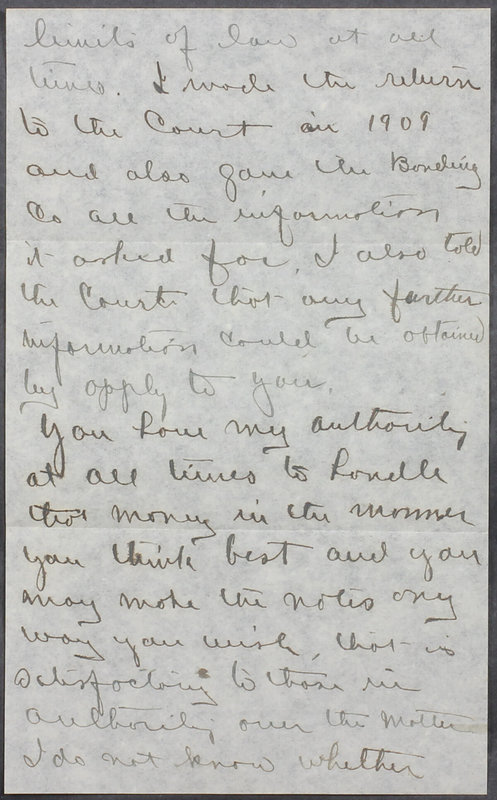 limits of law at all
times. I made the return
to the Court in 1909
and also gave the Bonding
Co all the information
it asked for, I also told
the Court that any further
information could be obtained
by apply to you.
You have my authority
at all times to handle
that money in the manner
you think best and you
may make the notes any
way you wish, that is
satisfactory to those in
authority over the matter
I do not know whether